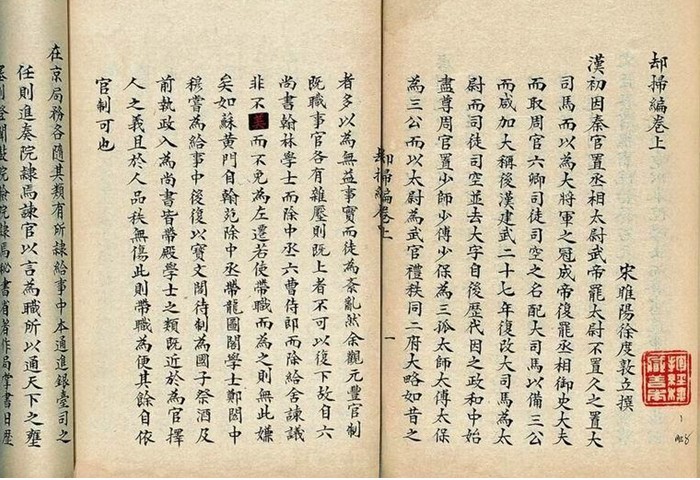 却掃編卷上
宋睢陽徐度敦立撰
漢初因秦官置丞相太尉武帝罷太尉不置久之置大
司馬而以為大將軍之冠成帝復罷丞相御史大夫
而取周官六卿司徒司空之名配大司馬以備三公
而咸加大稱後漢建武二十七年復改大司馬為太
尉而司徒司空並去大字自後歷代因之政和中始
盡尊周官置少師少傅少保為三孤太師太傅太保
為三公而以太尉為武官禮秩同二府大略如昔之
却掃編卷上
一
者多以為無益事實而徒為紊亂然余觀元豐官制
既職事官各有雜壓則既上者不可以復下故自六
尚書翰林學士而除中丞六曹侍郎而除給舍諫議
非不美而不免為左遷若使帶職而為之則無此嫌
矣如蘇黃門自翰苑除中丞帶龍圖閣學士鄭閎中
穆嘗為給事中後復以寶文閣待制為國子祭酒及
前執政入為尚書皆帶殿學士之類既近於為官擇
人之義且於人品秩無傷此則帶職為便其餘自依
官制可也
在京局務各隨其類有所隸給事中本通進銀臺司之
任則進奏院隸焉諫官以言為職所以通天下之壅